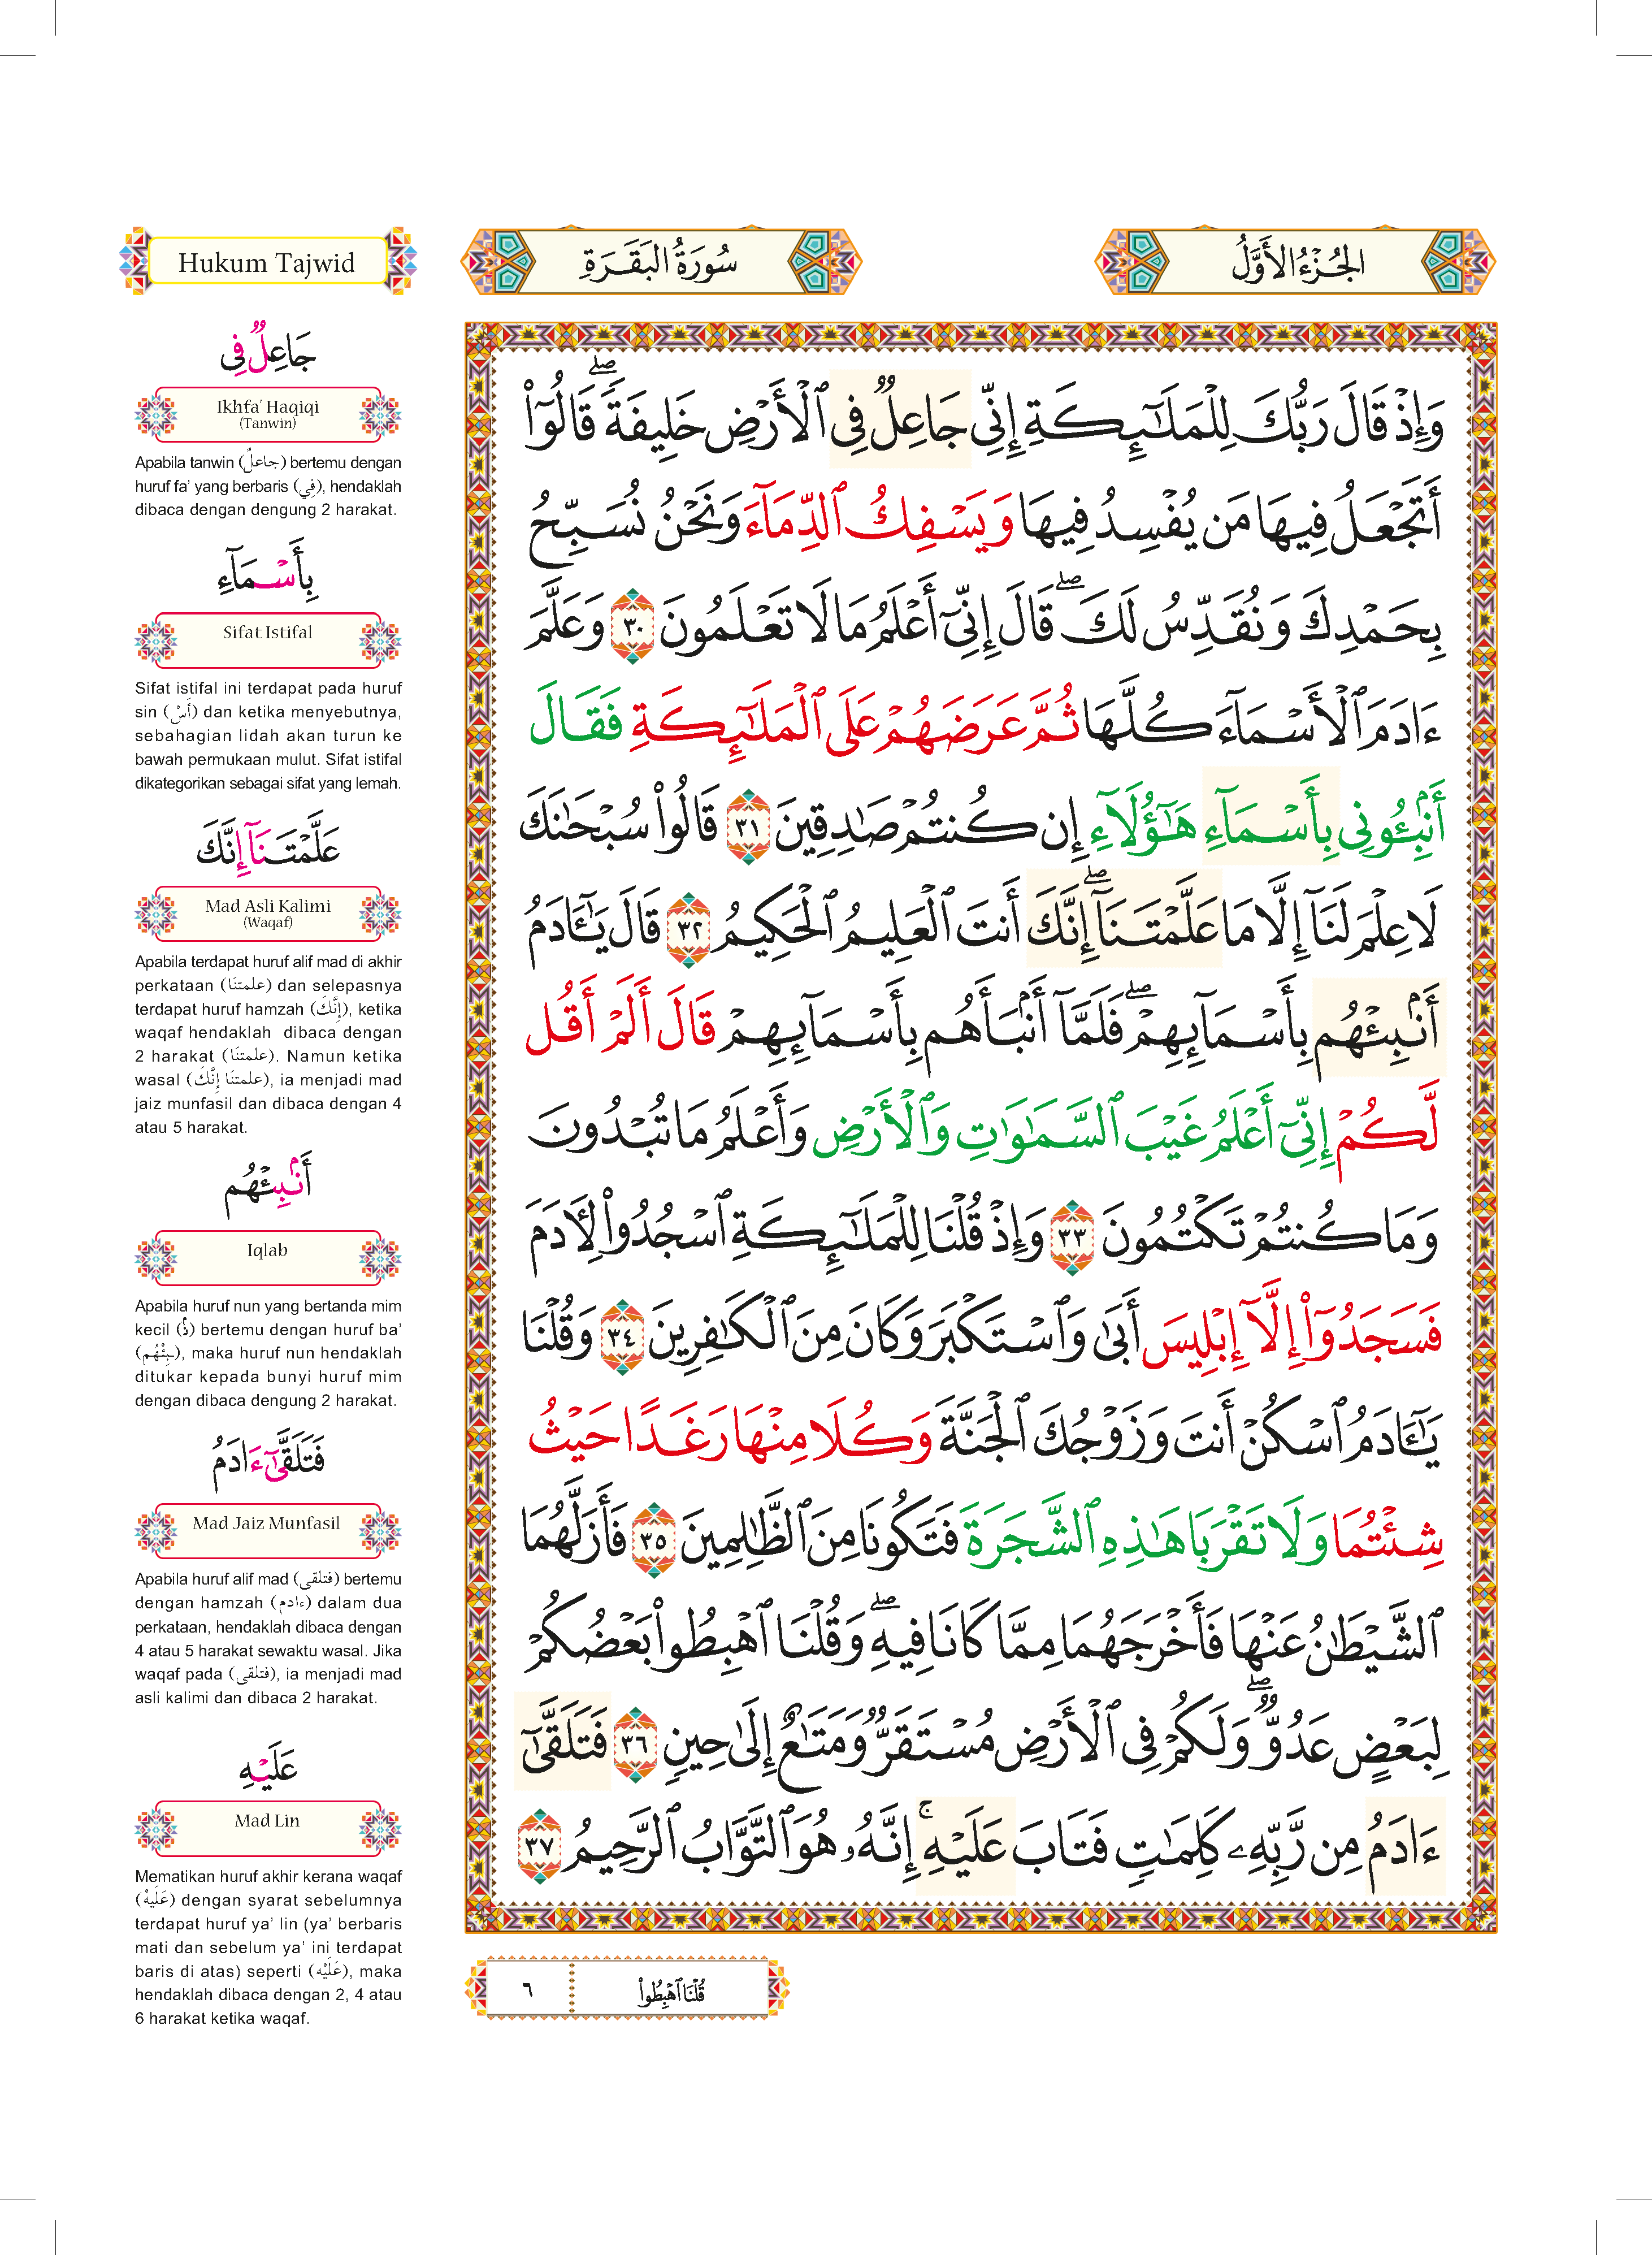 Hukum Tajwid
جَاعِلٌ فِى
Ikhfa’ Haqiqi
(Tanwin)
Apabila tanwin (جاعلٌ) bertemu dengan
huruf fa’ yang berbaris (فِي), hendaklah
dibaca dengan dengung 2 harakat.
بِأَسْمَآءِ
Sifat Istifal
Sifat istifal ini terdapat pada huruf
sin (أَسْ) dan ketika menyebutnya,
sebahagian lidah akan turun ke
bawah permukaan mulut. Sifat istifal
dikategorikan sebagai sifat yang lemah.
عَلَّمْتَنَآ إِنَّكَ
Mad Asli Kalimi
(Waqaf)
Apabila terdapat huruf alif mad di akhir
perkataan (علمتنَا) dan selepasnya
terdapat huruf hamzah (إِنَّكَ), ketika
waqaf hendaklah dibaca dengan
2 harakat (علمتنَا). Namun ketika
wasal (علمتنَا إِنَّكَ), ia menjadi mad
jaiz munfasil dan dibaca dengan 4
atau 5 harakat.
أَنۢبِئْهُم
Iqlab
Apabila huruf nun yang bertanda mim
kecil (نۢ) bertemu dengan huruf ba’
(ـبِئْهُم), maka huruf nun hendaklah
ditukar kepada bunyi huruf mim
dengan dibaca dengung 2 harakat.
فَتَلَقَّىٰٓ ءَادَمُ
Mad Jaiz Munfasil
Apabila huruf alif mad (فتلقى) bertemu
dengan hamzah (ءادم) dalam dua
perkataan, hendaklah dibaca dengan
4 atau 5 harakat sewaktu wasal. Jika
waqaf pada (فتلقى), ia menjadi mad
asli kalimi dan dibaca 2 harakat.
عَلَيْهِ
Mad Lin
Mematikan huruf akhir kerana waqaf
(عَلَيْهْ) dengan syarat sebelumnya
terdapat huruf ya’ lin (ya’ berbaris
mati dan sebelum ya’ ini terdapat
baris di atas) seperti (عَلَيْه), maka
hendaklah dibaca dengan 2, 4 atau
6 harakat ketika waqaf.
الجُزْءُ الأَوَّلُ
سُورَةُ البَقَرَةِ
وَإِذْ قَالَ رَبُّكَ لِلْمَلَـٰٓئِكَةِ إِنِّى جَاعِلٌ فِى ٱلْأَرْضِ خَلِيفَةً ۖ قَالُوٓا۟
أَتَجْعَلُ فِيهَا مَن يُفْسِدُ فِيهَا وَيَسْفِكُ ٱلدِّمَآءَ وَنَحْنُ نُسَبِّحُ
بِحَمْدِكَ وَنُقَدِّسُ لَكَ ۖ قَالَ إِنِّىٓ أَعْلَمُ مَا لَا تَعْلَمُونَ ٣٠ وَعَلَّمَ
ءَادَمَ ٱلْأَسْمَآءَ كُلَّهَا ثُمَّ عَرَضَهُمْ عَلَى ٱلْمَلَـٰٓئِكَةِ فَقَالَ
أَنۢبِـُٔونِى بِأَسْمَآءِ هَـٰٓؤُلَآءِ إِن كُنتُمْ صَـٰدِقِينَ ٣١ قَالُوا۟ سُبْحَـٰنَكَ
لَا عِلْمَ لَنَآ إِلَّا مَا عَلَّمْتَنَآ ۖ إِنَّكَ أَنتَ ٱلْعَلِيمُ ٱلْحَكِيمُ ٣٢ قَالَ يَـٰٓـَٔادَمُ
أَنۢبِئْهُم بِأَسْمَآئِهِمْ ۖ فَلَمَّآ أَنۢبَأَهُم بِأَسْمَآئِهِمْ قَالَ أَلَمْ أَقُل
لَّكُمْ إِنِّىٓ أَعْلَمُ غَيْبَ ٱلسَّمَـٰوَٰتِ وَٱلْأَرْضِ وَأَعْلَمُ مَا تُبْدُونَ
وَمَا كُنتُمْ تَكْتُمُونَ ٣٣ وَإِذْ قُلْنَا لِلْمَلَـٰٓئِكَةِ ٱسْجُدُوا۟ لِـَٔادَمَ
فَسَجَدُوٓا۟ إِلَّآ إِبْلِيسَ أَبَىٰ وَٱسْتَكْبَرَ وَكَانَ مِنَ ٱلْكَـٰفِرِينَ ٣٤ وَقُلْنَا
يَـٰٓـَٔادَمُ ٱسْكُنْ أَنتَ وَزَوْجُكَ ٱلْجَنَّةَ وَكُلَا مِنْهَا رَغَدًا حَيْثُ
شِئْتُمَا وَلَا تَقْرَبَا هَـٰذِهِ ٱلشَّجَرَةَ فَتَكُونَا مِنَ ٱلظَّـٰلِمِينَ ٣٥ فَأَزَلَّهُمَا
ٱلشَّيْطَـٰنُ عَنْهَا فَأَخْرَجَهُمَا مِمَّا كَانَا فِيهِ ۖ وَقُلْنَا ٱهْبِطُوا۟ بَعْضُكُمْ
لِبَعْضٍ عَدُوٌّ ۖ وَلَكُمْ فِى ٱلْأَرْضِ مُسْتَقَرٌّ وَمَتَـٰعٌ إِلَىٰ حِينٍ ٣٦ فَتَلَقَّىٰٓ
ءَادَمُ مِن رَّبِّهِۦ كَلِمَـٰتٍ فَتَابَ عَلَيْهِ ۚ إِنَّهُۥ هُوَ ٱلتَّوَّابُ ٱلرَّحِيمُ ٣٧
قُلْنَا ٱهْبِطُوا۟
٦